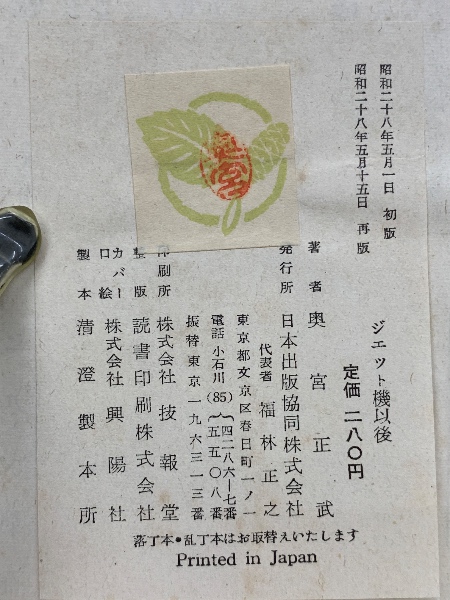 昭和二十八年五月一日　初版
昭和二十八年五月十五日　再版
ジエット機以後
定価 二八〇円
著者　奥宮正武
発行所　日本出版協同株式会社
代表者　福林正之
東京都文京区春日町一ノ一
電話 小石川 (85) {四二八六—七番
五五〇八番
振替東京一九六三一三番
印刷所　株式会社技報堂
整版　読書印刷株式会社
カバー
口絵　株式会社興陽社
製本　清澄製本所
落丁本・乱丁本はお取替えいたします
Printed in Japan